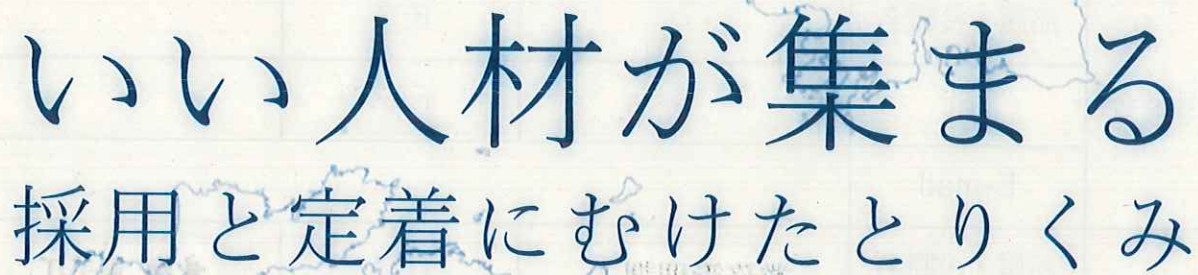 いい人材が集まる
採用と定着にむけたとりくみ